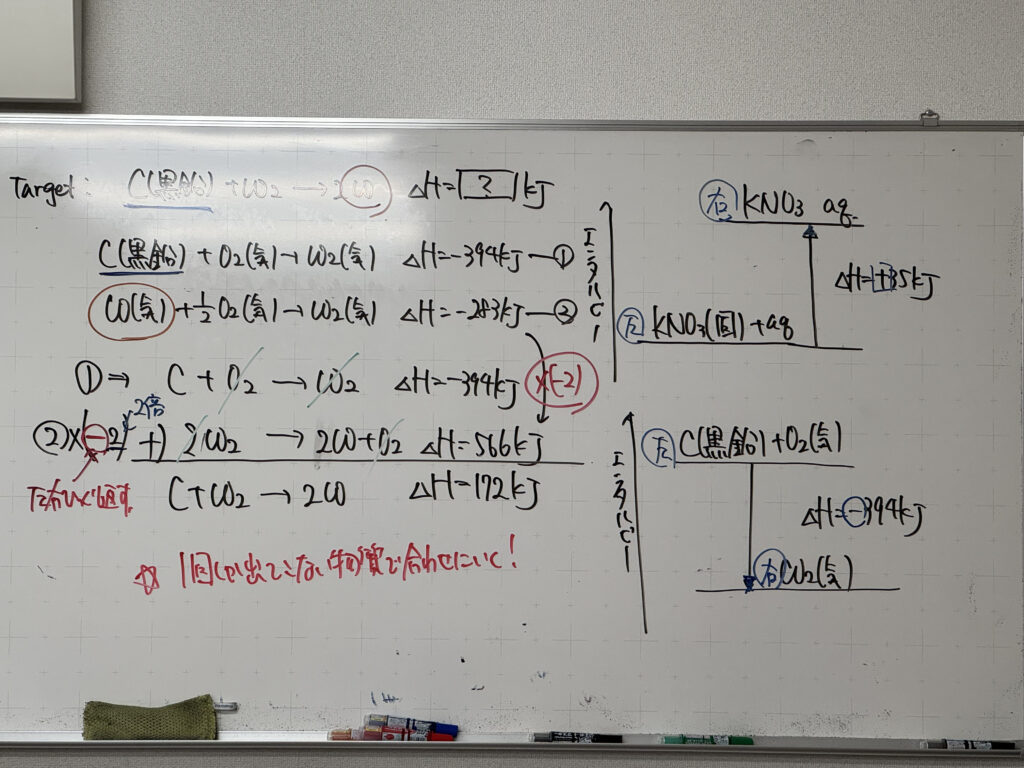 Target: C(黒鉛)+CO2→2CO ΔH=?kJ
C(黒鉛)+O2(気)→CO2(気) ΔH=-394kJ―①
CO(気)+1/2O2(気)→CO2(気) ΔH=-283kJ―②
①⇒ C+O2→CO2 ΔH=-394kJ ×(-2)
2倍
②×(-2) +) 2CO2→2CO+O2 ΔH=566kJ
C+CO2→2CO ΔH=172kJ
左右ひっくり返す
☆ 1回しか出ていない物質で合わせにいく!
エネルギー
右 KNO3 aq
ΔH=+35kJ
左 KNO3(固)+aq
エネルギー
左 C(黒鉛)+O2(気)
ΔH=-394kJ
右 CO2(気)